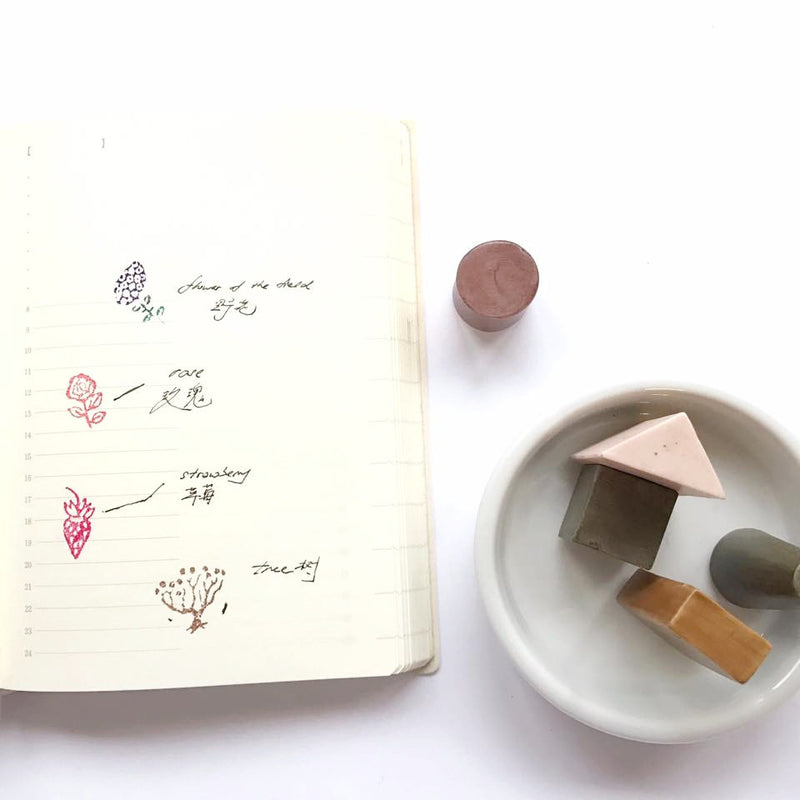 [ ]
8
9
10
11
12
13
14
15
16
17
18
19
20
21
22
23
24
flower of the field
野花
rose
玫瑰
strawberry
草莓
tree 树